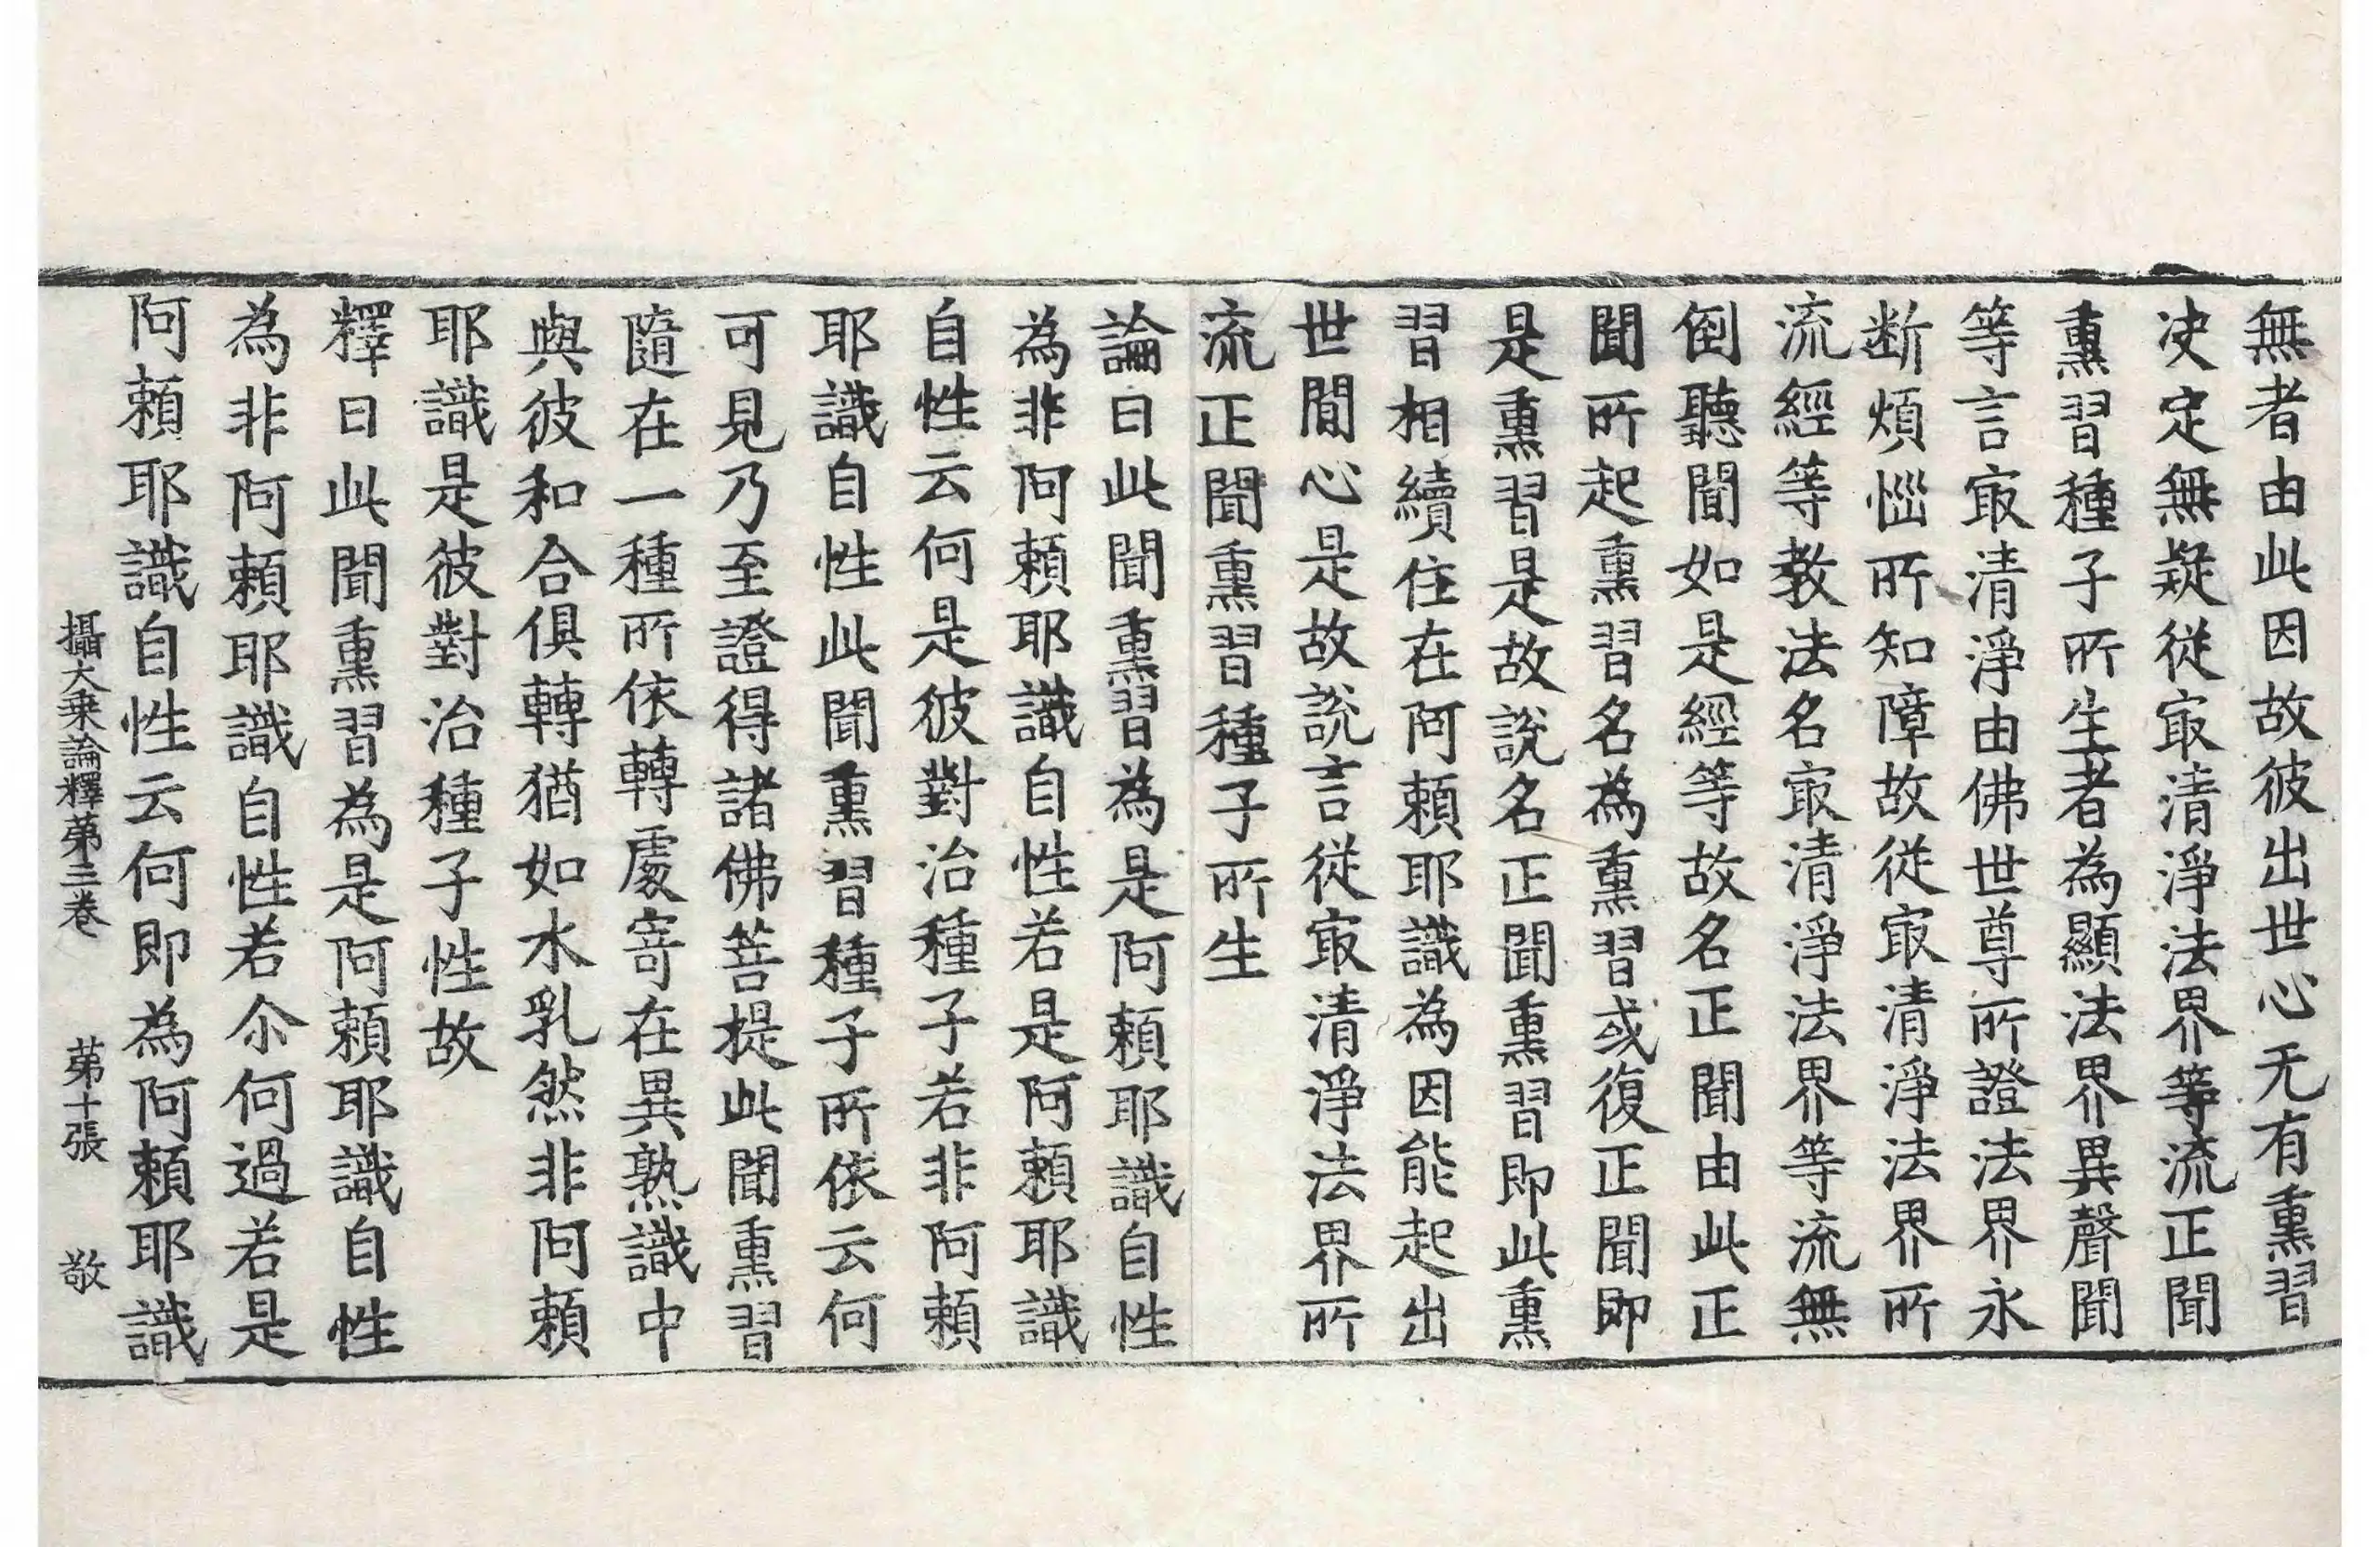 無者由此因故彼出世心无有熏習
决定無疑從㝡清淨法界等流正聞
熏習種子所生者為顯法界異聲聞
等言㝡清淨由佛世尊所證法界永
断煩惱所知障故從㝡清淨法界所
流經等教法名㝡清淨法界等流無
倒聽聞如是經等故名正聞由此正
聞所起熏習名為熏習或復正聞即
是熏習是故說名正聞熏習即此熏
習相續住在阿賴耶識為因能起出
世間心是故說言從㝡清淨法界所
流正聞熏習種子所生
論曰此聞熏習為是阿賴耶識自性
為非阿賴耶識自性若是阿賴耶識
自性云何是彼對治種子若非阿賴
耶識自性此聞熏習種子所依云何
可見乃至證得諸佛菩提此聞熏習
隨在一種所依轉處寄在異熟識中
與彼和合俱轉猶如水乳然非阿賴
耶識是彼對治種子性故
釋曰此聞熏習為是阿賴耶識自性
為非阿賴耶識自性若尒何過若是
阿賴耶識自性云何即為阿賴耶識
攝大乗論釋第三卷 第十張 敬